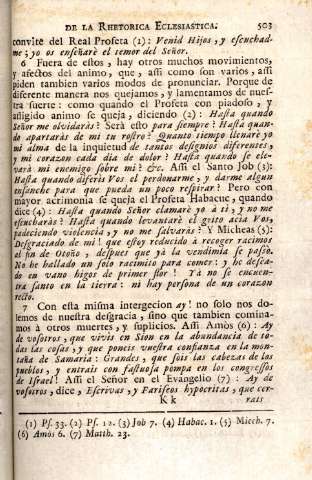 DE LA RHETORICA ECLESIASTICA. 503
convite del Real Profeta (1): Venid Hijos, y escuchad-
me; yo os enseñaré el temor del Señor.
6 Fuera de estos, hay otros muchos movimientos,
y afectos del animo, que, assi como son varios, assi
piden tambien varios modos de pronunciar. Porque de
diferente manera nos quejamos, y lamentamos de nues-
tra suerte: como quando el Profeta con piadoso, y
afligido animo se queja, diciendo (2): Hasta quando
Señor me olvidarás? Será esto para siempre? Hasta quan-
do apartarás de mi tu rostro? Quanto tiempo llenaré yo
mi alma de la inquietud de tantos designios diferentes,
y mi corazon cada dia de dolor? Hasta quando se ele-
vará mi enemigo sobre mi? &c. Assi el Santo Job (3):
Hasta quando diferis Vos el perdonarme, y darme algun
ensanche para que pueda un poco respirar? Pero con
mayor acrimonia se queja el Profeta Habacuc, quando
dice (4): Hasta quando Señor clamaré yo á ti, y no me
escucharás? Hasta quando levantaré el grito acia Vos,
padeciendo violencia, y no me salvarás? Y Micheas (5):
Desgraciado de mi! que estoy reducido á recoger racimos
al fin de Otoño, despues que yá la vendimia se passó.
No he hallado un solo racimito para comer: y he desea-
do en vano higos de primer flor! Yá no se encuen-
tra santo en la tierra: ni hay persona de un corazon
recto.
7 Con esta misma intergecion ay! no solo nos do-
lemos de nuestra desgracia, sino que tambien comina-
mos á otros muertes, y suplicios. Assi Amós (6): Ay
de vosotros, que vivis en Sion en la abundancia de to-
das las cosas, y que poneis vuestra confianza en la mon-
taña de Samaria: Grandes, que sois las cabezas de los
pueblos, y entrais con fastuosa pompa en los congressos
de Israel! Assi el Señor en el Evangelio (7): Ay de
vosotros, dice, Escrivas, y Fariseos hypocritas, que cer-
Kk rais
(1) Ps. 33. (2) Ps. 12. (3) Job 7. (4) Habac. 1. (5) Mich. 7.
(6) Amós 6. (7) Matth. 23.